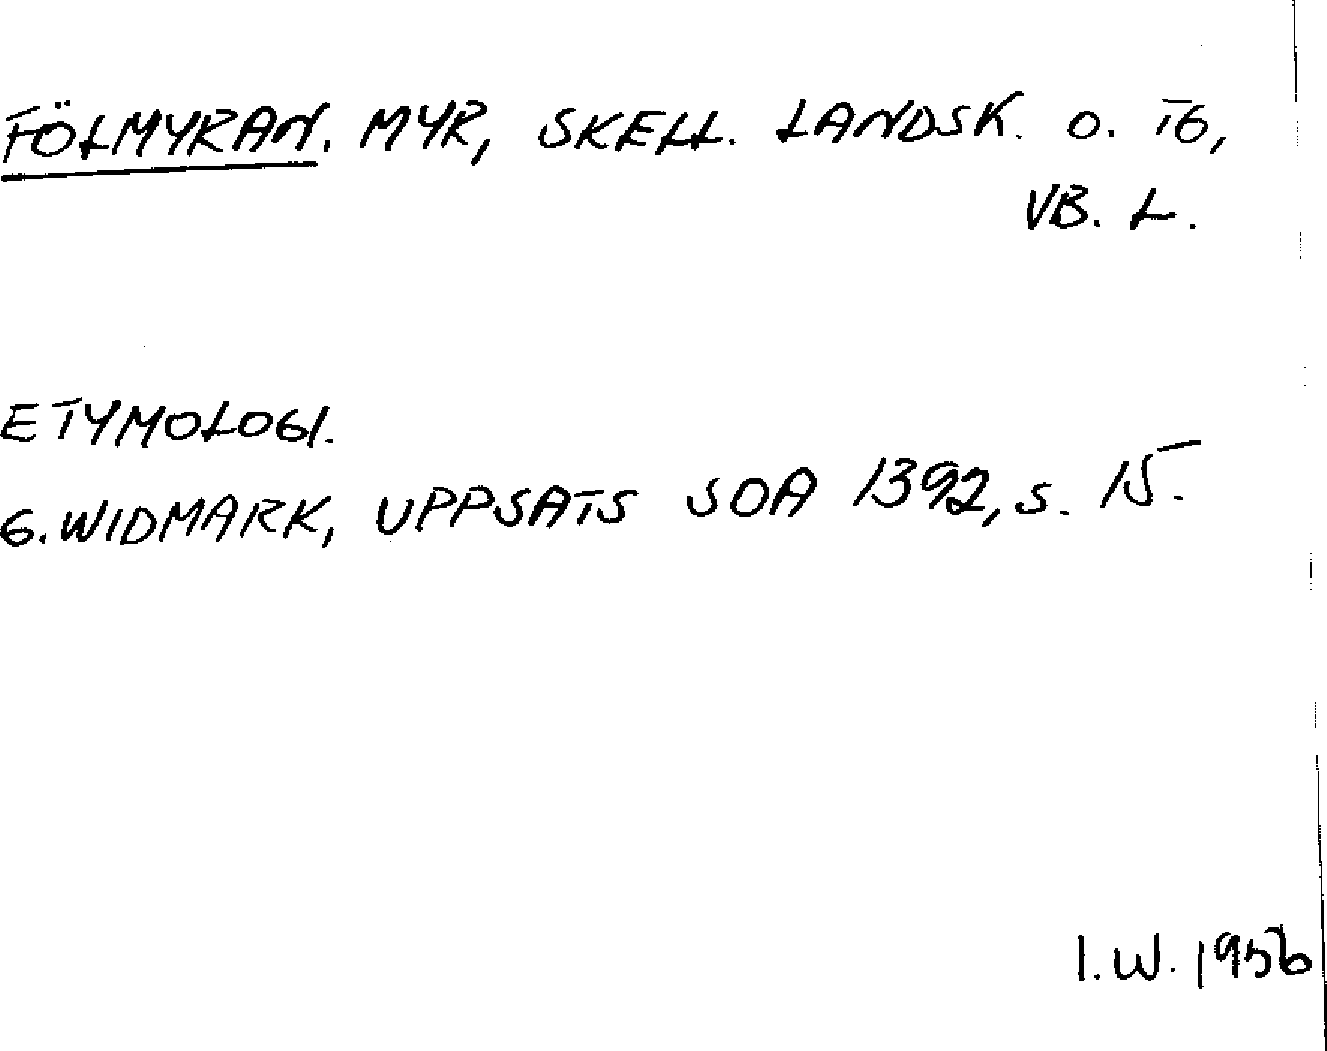 FÖLMYRAN. MYR, SKELL. LANDSK. O. TG,
VB. L.
ETYMOLOGI.
G. WIDMARK, UPPSATS SOA 1392, S. 15.
I.W. 1956